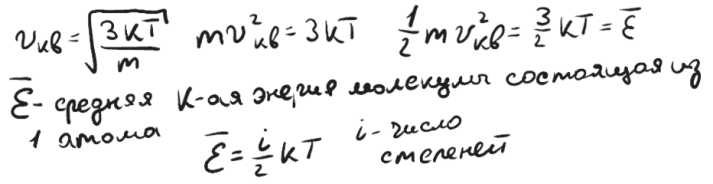 υкв = √(3kT/m) mυ²кв = 3kT 1/2 mυ²кв = 3/2 kT = ε̅
ε̅ - средняя к-ая энергия молекулы состоящая из
1 атома
ε̅ = i/2 kT i - число
степеней